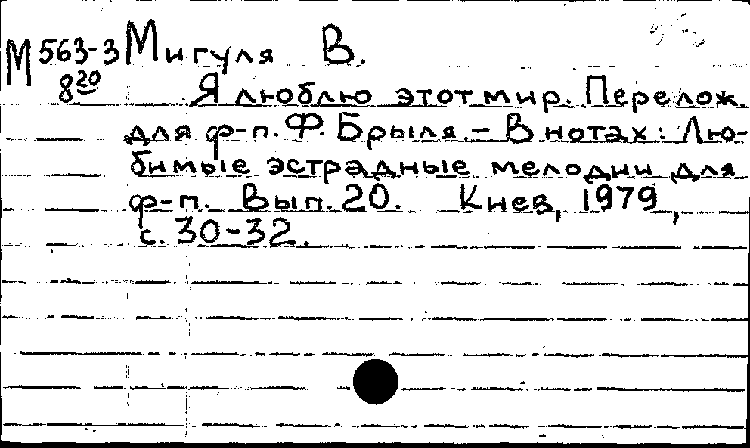 М 563-3 Мигуля В.
8 20
Я люблю этот мир. Перелож.
для ф-п. Ф. Брыля. - В нотах: Лю-
бимые эстрадные мелодии для
ф-п. Вып. 20. Киев, 1979,
с. 30-32.